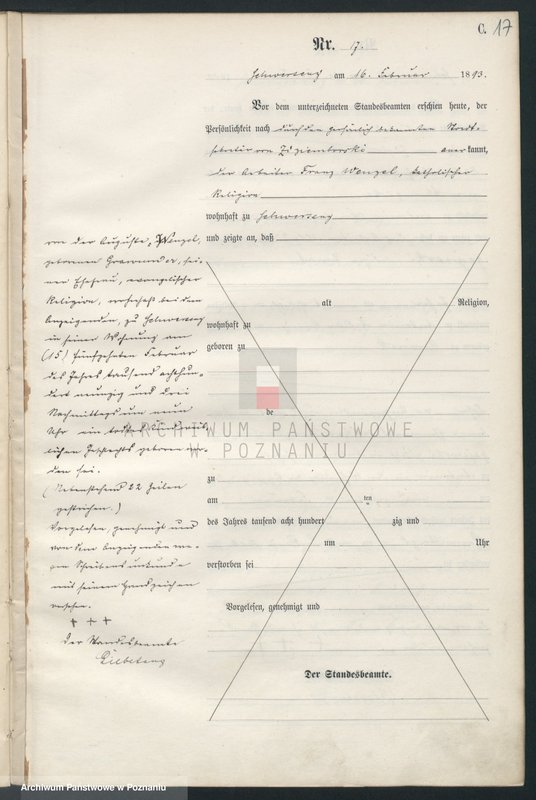 C. 17
Nr. 17.
Schwersenz am 16. Februar 1893.
Vor dem unterzeichneten Standesbeamten erschien heute, der
Persönlichkeit nach durch den persönlich bekannten Stadt-
sekretär von anerkannt,
der Arbeiter Franz Wenzel, katholischer
Religion
wohnhaft zu Schwersenz
und zeigte an, daß
von der Auguste Wenzel,
geborenen sei-
ner Ehefrau, evangelischer
Religion, wohnhaft bei dem
Anzeigenden, zu Schwersenz
in seiner Wohnung am
(15) fünfzehnten Februar
des Jahres tausend achthun-
dert neunzig und drei
Nachmittags um neun
Uhr ein todtes Kind weib-
lichen Geschlechts geboren wor-
den sei.
(Nebenstehend 22 Zeilen
gestrichen.)
Vorgelesen, genehmigt und
von dem Anzeigenden we-
gen Schreibensunkunde
mit seinem Handzeichen
versehen.
+ + +
Der Standesbeamte
alt Religion,
wohnhaft zu
geboren zu
de
zu
am ten
des Jahres tausend acht hundert zig und
um Uhr
verstorben sei
Vorgelesen, genehmigt und
Der Standesbeamte.
ARCHIWUM PAŃSTWOWE
W POZNANIU
Archiwum Państwowe w Poznaniu